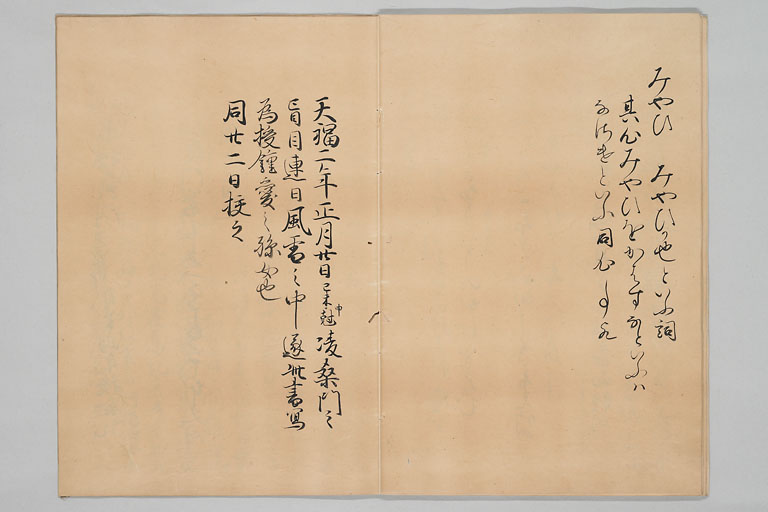 みやひ　みやひか也といふ詞
其心みやひをかはすなといふハ
なさけといふ同心事也
天福二年正月廿日己未申尅凌桑門之
盲目連日風雪之中遂此書写
為授鍾愛之孫女也
同廿二日校之